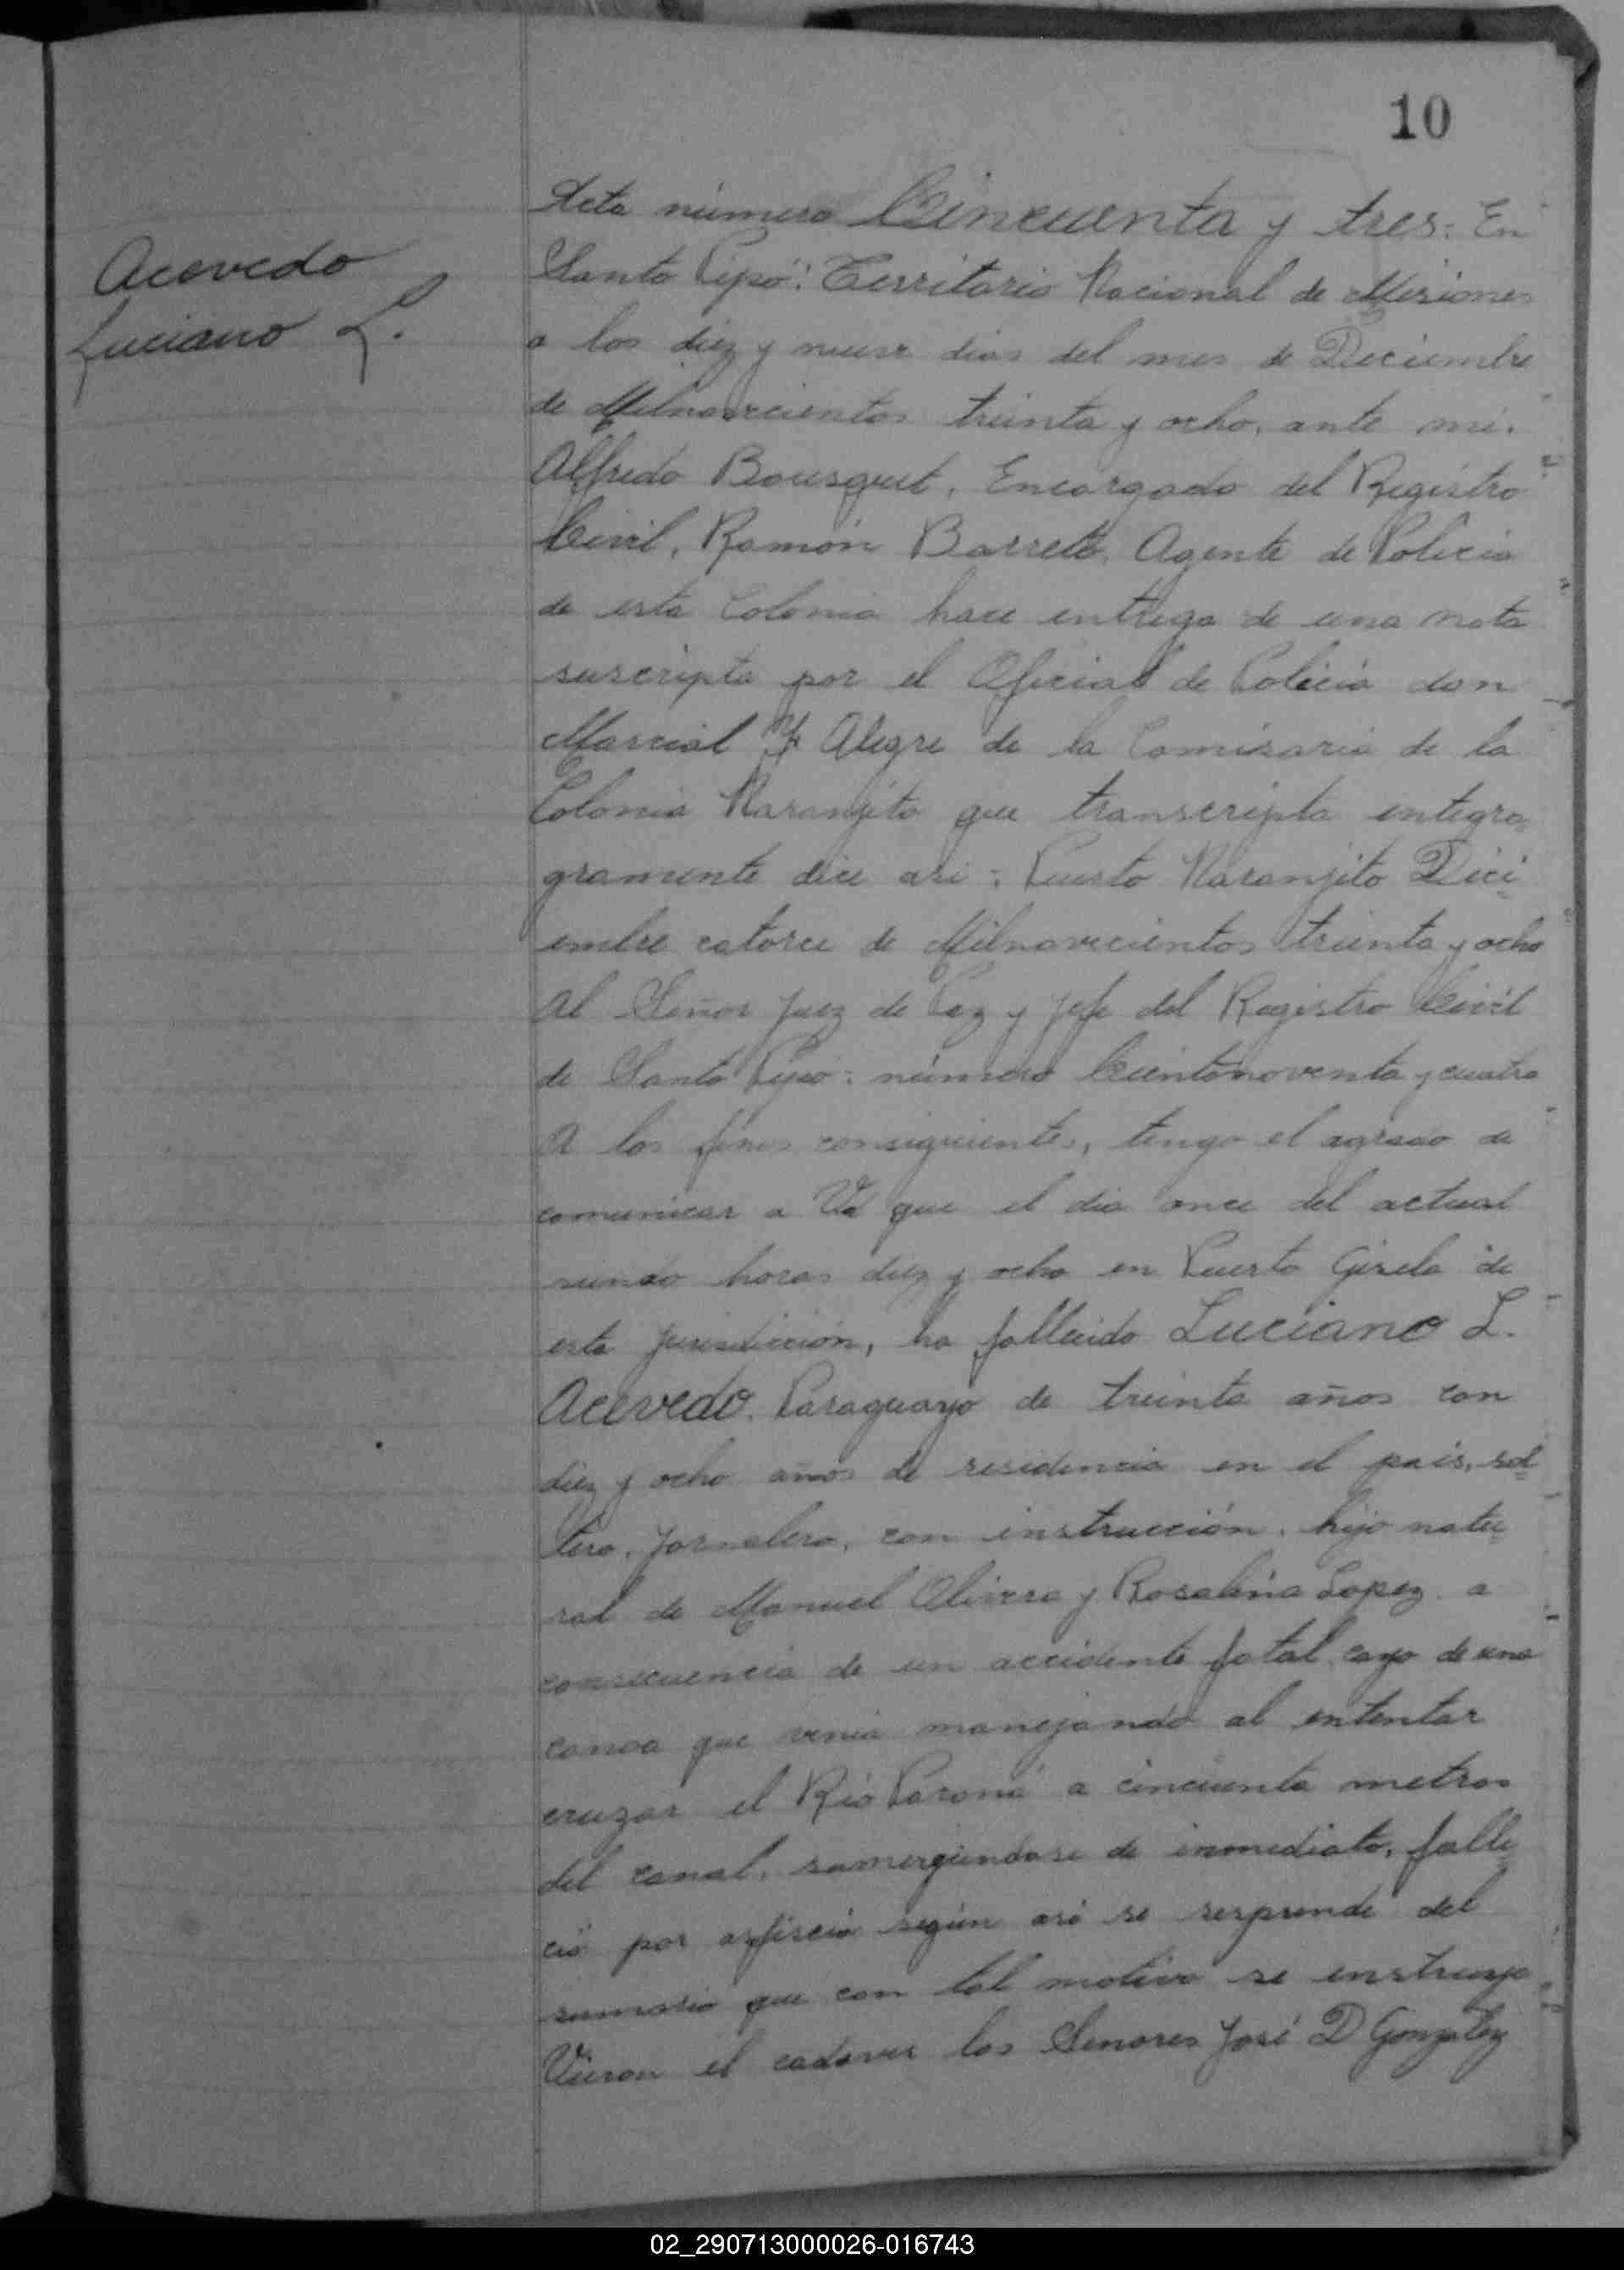 10
Acevedo
Luciano L.
Acta número Cincuenta y tres: En
Santo Pipó: Territorio Nacional de Misiones
a los diez y nueve dias del mes de Diciembre
de Milnovecientos treinta y ocho, ante mi.
Alfredo Bousquet, Encargado del Registro
Civil, Ramón Barreto, Agente de Policia
de esta Colonia hace entrega de una nota
suscripta por el Oficial de Policía don
Marcial Alegre de la Comisaria de la
Colonia Naranjito que transcripta integra=
gramente dice asi: Puerto Naranjito Dici=
embre catorce de Milnovecientos treinta y ocho
Al Señor Juez de Paz y Jefe del Registro Civil
de Santo Pipó: número Cientonoventa y cuatro
A los fines consiguientes, tengo el agrado de
comunicar a Vd que el dia once del actual
siendo horas diez y ocho en Puerto Gisela de
esta jurisdicción, ha fallecido Luciano L.
Acevedo. Paraguayo de treinta años con
diez y ocho años de residencia en el país, sol=
tero, jornalero, con instrucción, hijo natu=
ral de Manuel Olivera y Rosalina Lopez a
consecuencia de un accidente fatal, cayo de una
canoa que venia manejando al intentar
cruzar el Río Paraná a cincuenta metros
del canal, sumergiendose de inmediato, falle
ció por asficcia según asi se resprende del
sumario que con tal motivo se instruye
Vieron el cadaver los Senores José D Gonzalez
02_290713000026-016743